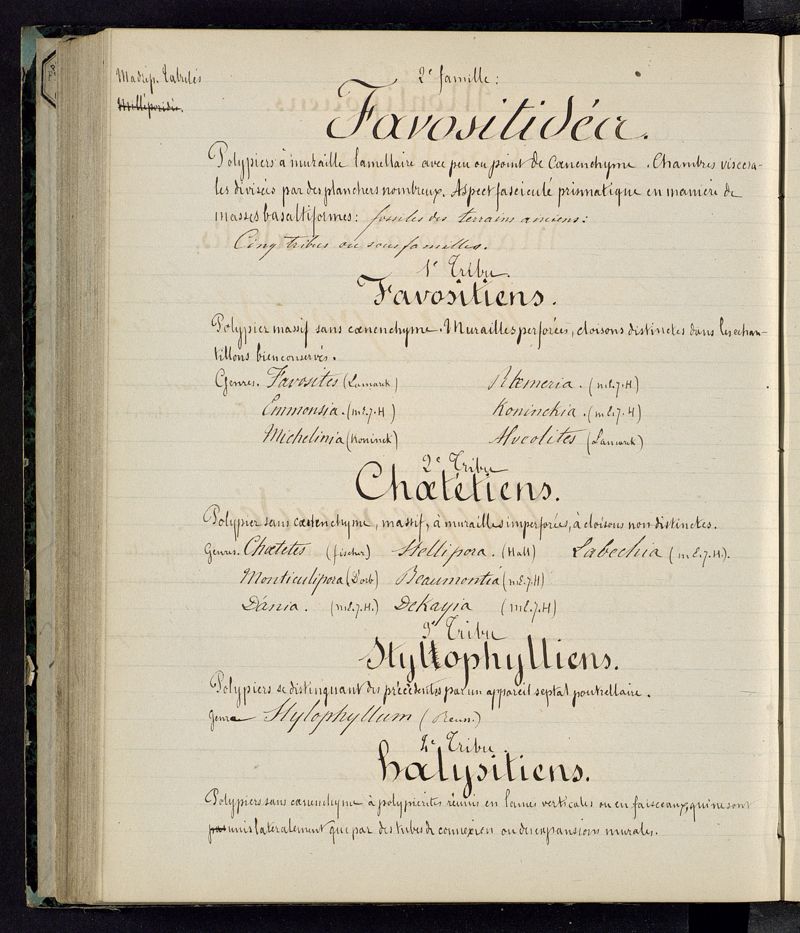 Madrép. Tabulés
Milléporidæ.
2e famille:
Favositidéa.
Polypiers à muraille lamellaire avec peu ou point de Cœnenchyme. Chambres viscéra-
les divisées par des planchers nombreux. Aspect fasciculé prismatique en manière de
masses basaltiformes: fossiles des terrains anciens:
Cinq tribus ou sous familles.
1e Tribu.
Favositiens.
Polypier massif sans cœnenchyme. Murailles perforées, cloisons distinctes dans les échan-
tillons bien conservés.
Genres. Favosites (Lamarck) Rœmeria. (m E. J. H)
Emmonsia. (m E. J. H) Koninckia. (m E. J. H)
Michelinia (Koninck) Alveolites (Lamarck)
2e Tribu
Chætétiens.
Polypier sans cœnenchyme, massif, à murailles imperforées, à cloisons non distinctes.
Genres. Chætetes (fischer) Stellipora. (Hall) Labechia (m E. J. H.).
Monticulipora (D'orb) Beaumontia (m E. J. H)
Dania. (m E. J. H.) Dekayia (m E. J. H)
3e Tribu
Styllophylliens.
Polypiers se distinguant des précédents par un appareil septal poutrellaire.
Genre Stylophyllum (Reuss.)
4e Tribu.
halysitiens.
Polypiers sans cœnenchyme à polypiérites réunis en lames verticales ou en faisceaux, qui ne sont
pas unis latéralement que par des tubes de connexion ou des expansions murales.